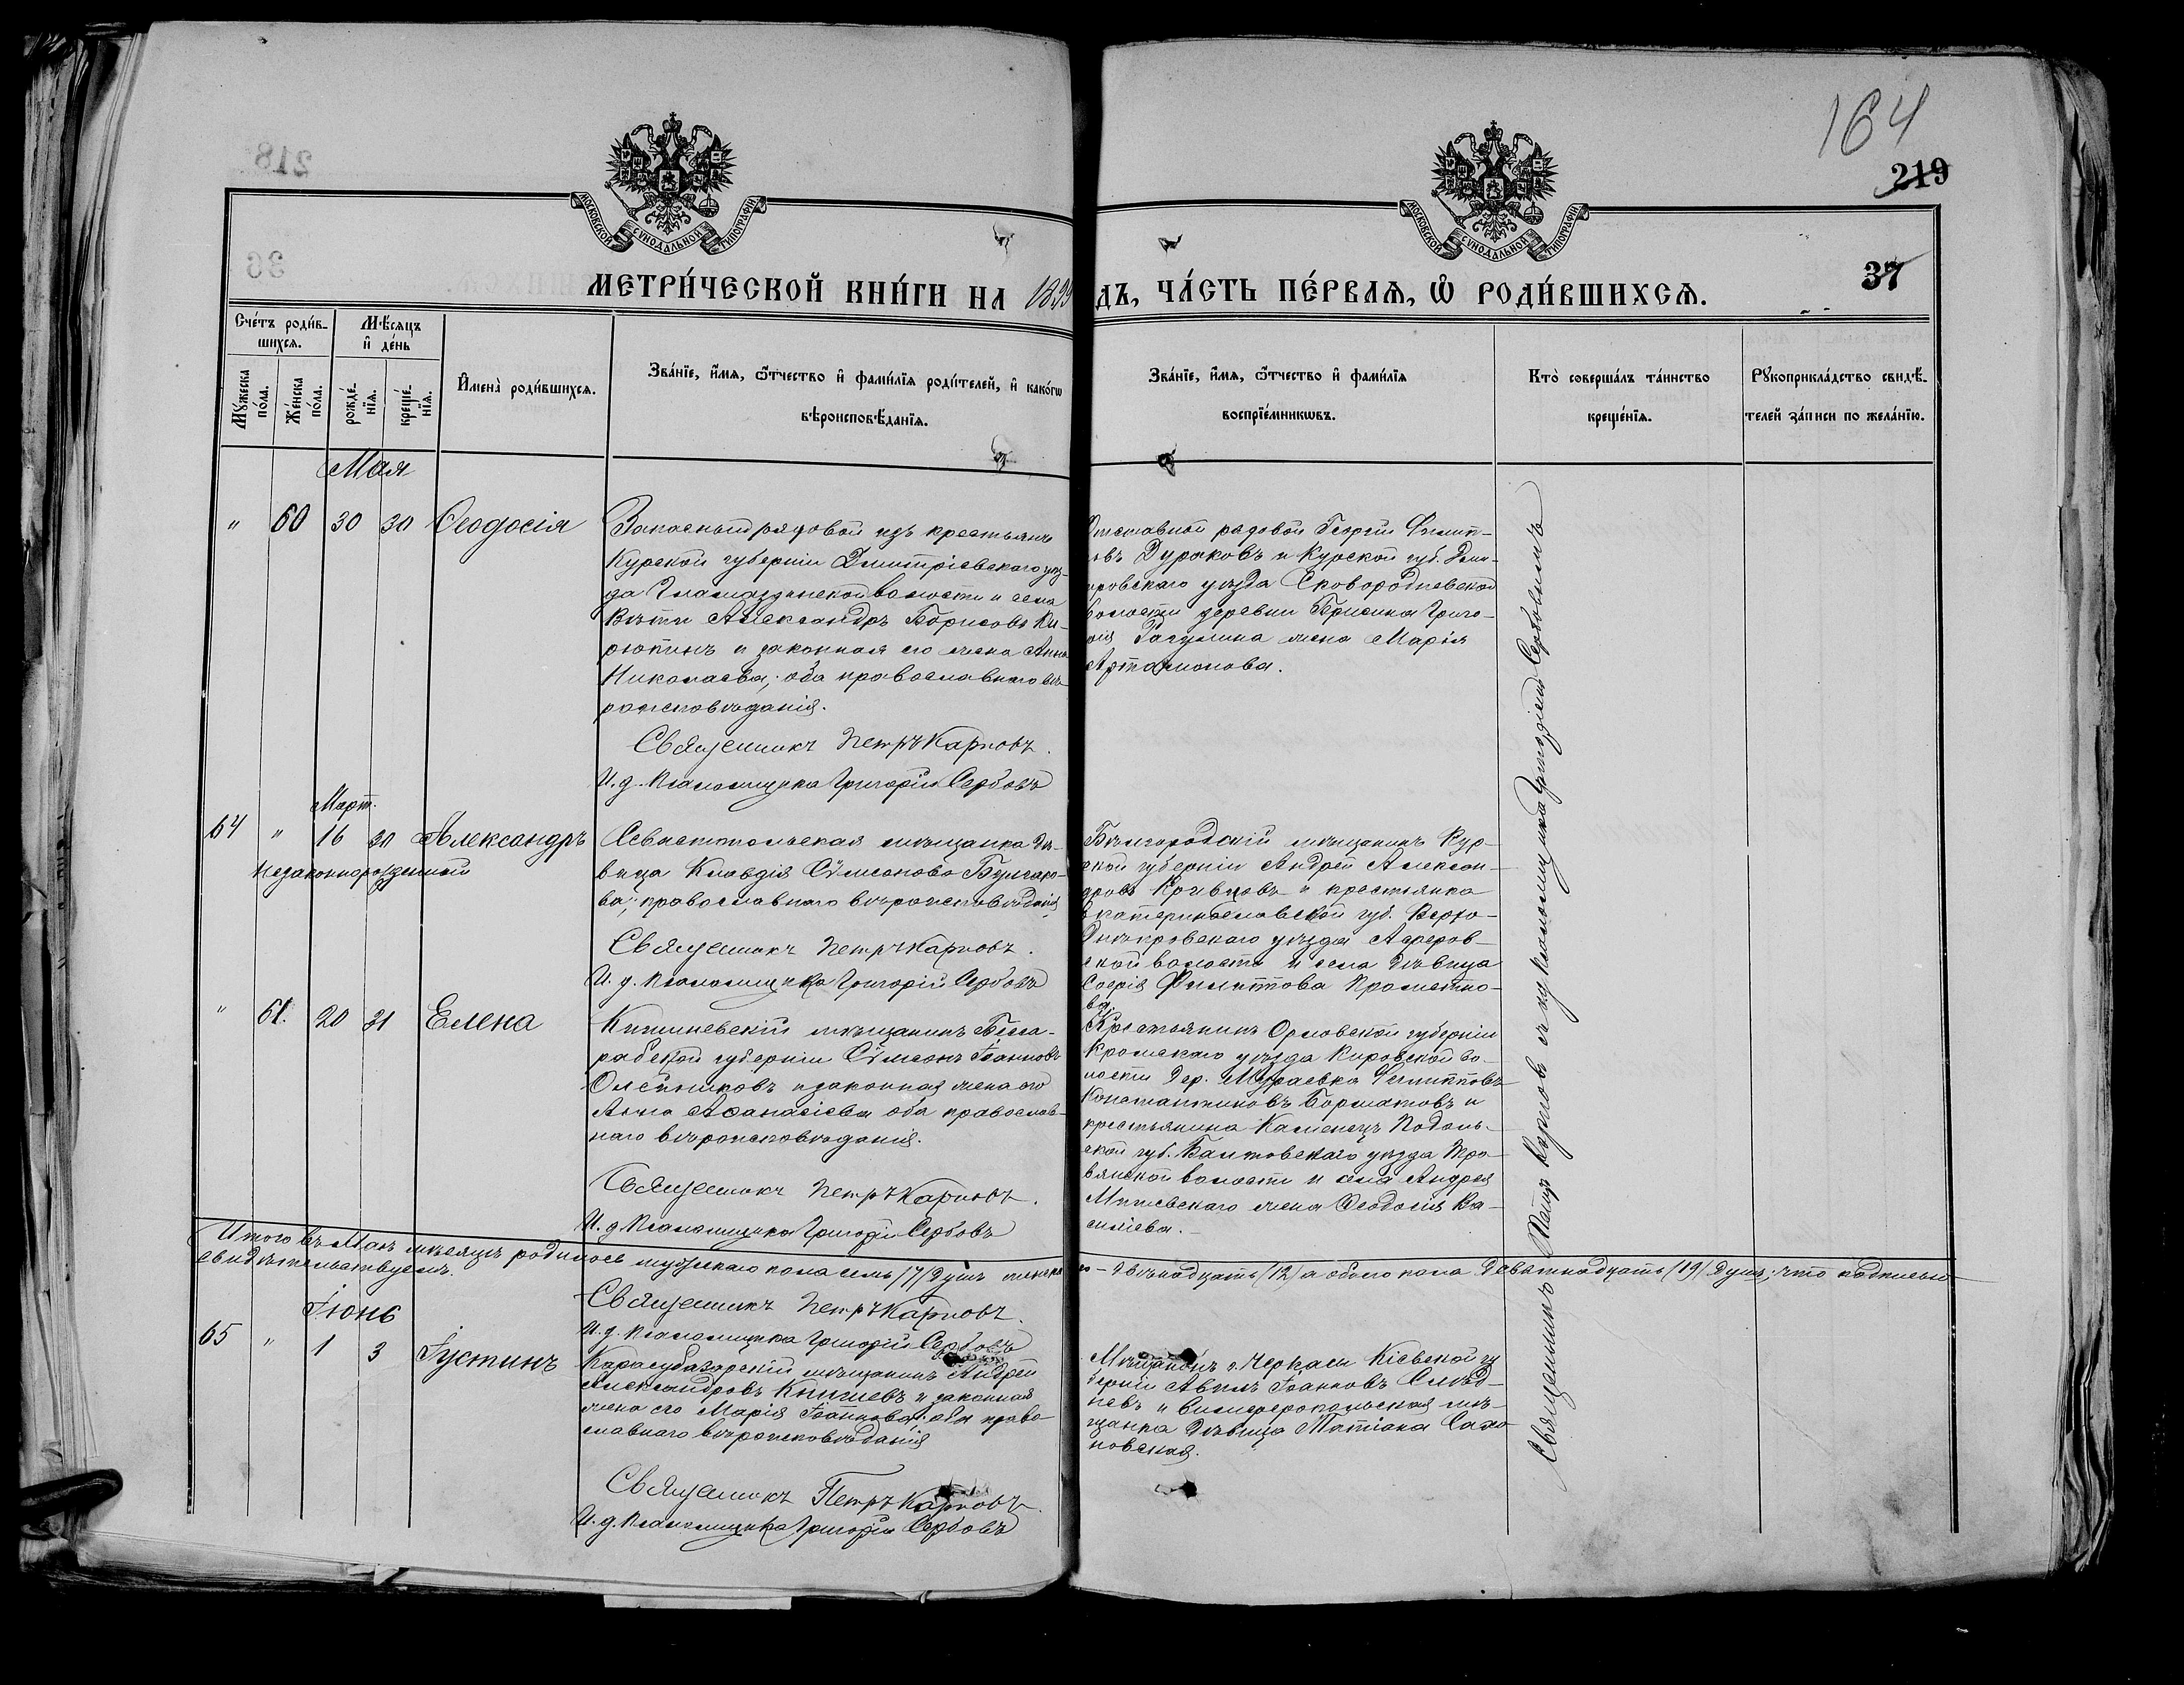 164
219
218
МОСКОВСКОЙ СѴНОДАЛЬНОЙ ТИПОГРАФІИ
МОСКОВСКОЙ СѴНОДАЛЬНОЙ ТИПОГРАФІИ
36
37
МЕТРИ́ЧЕСКОЙ КНИ́ГИ НА 1899
ДЪ, ЧА́СТЬ ПЕ́РВАѦ, Ѡ҆ РОДИ́ВШИХСѦ.
Сче́тъ роди́в-
шихсѧ.
Мѣ́сѧцъ
и҆ де́нь
Мꙋ́жеска
по́ла.
Же́нска
по́ла.
рожде́-
нїѧ.
креще́-
нїѧ.
И҆мена̀ роди́вшихсѧ.
Зва́нїе, и҆́мѧ, ѻ҆́тчество и҆ фами́лїѧ роди́телей, и҆ како́гѡ
вѣроисповѣ́данїѧ.
Зва́нїе, и҆́мѧ, ѻ҆́тчество и҆ фами́лїѧ
воспрїе́мникѡвъ.
Кто̀ соверша́лъ та́инство
креще́нїѧ.
Рꙋкоприкла́дство свидѣ́-
телей за́писи по жела́нїю.
Мая
" 60 30 30 Ѳеодосія
Запасный рядовой изъ крестьянъ
Курской губерніи Дмитріевскаго уѣз-
да волости и села
Александръ Борисовъ Ки-
рютинъ и законная его жена Анна
Николаева; оба православнаго вѣ-
роисповѣданія.
Священникъ Петръ Карповъ.
И. д. Псаломщика Григорій Сербовъ
Отставной рядовой Георгій Филип-
овъ Дураковъ и Курской губ. Дми-
тровскаго уѣзда Сковородневской
волости деревни Григо-
рія жена Марія
Артамонова.
Март.
64 " 16 30 Александръ
Незаконнорожденный
Севастопольская мѣщанка дѣ-
вица Клавдія Сѵмеонова Булгаро-
ва; православнаго вѣроисповѣданія
Священникъ Петръ Карповъ.
И. д. Псаломщика Григорій Сербовъ
Бѣлгородскій мѣщанинъ Кур-
ской губерніи Андрей Алексан-
дровъ Кривцовъ и крестьянка
Екатеринославской губ. Верхо-
Днѣпровскаго уѣзда
ской волости и села дѣвица
Софія Филиппова
ва.
" 61. 20 31 Елена
Кишиневскій мѣщанинъ Бесса-
рабской губерніи Сѵмеонъ Іоанновъ
Олейниковъ и законная жена его
Анна Аѳанасіева оба православ-
наго вѣроисповѣданія.
Священникъ Петръ Карповъ.
И. д. Псаломщика Григорій Сербовъ
Крестьянинъ Орловской губерніи
Кромскаго уѣзда Кировской во-
лости дер. Филипповъ
Константиновъ и
крестьянина Каменецъ Подоль-
ской губ. Балтовскаго уѣзда
волости и села Андрея
жена Ѳеодосія Ва-
силіева.
Итого въ Маѣ мѣсяцѣ родилось мужескаго пола семь (7) душъ женска-
го - двѣнадцать (12) а обоего пола девятнадцать (19) душъ; что подписью
свидѣтельствуемъ.
Священникъ Петръ Карповъ.
И. д. Псаломщика Григорій Сербовъ
Іюнь
65 " 1 3 Іустинъ
Карасубазарскій мѣщанинъ Андрей
Александровъ и законная
жена его Марія Іоаннова; оба право-
славнаго вѣроисповѣданія
Священникъ Петръ Карповъ
И. д. Псаломщика Григорій Сербовъ
Мѣщанинъ г. Черкасы Кіевской гу
берніи Іоанновъ
и Симферопольская мѣ-
щанка дѣвица Татіана Сахо
новская.
Священникъ Петръ Карповъ съ и. д. псаломщика Григоріемъ Сербовымъ